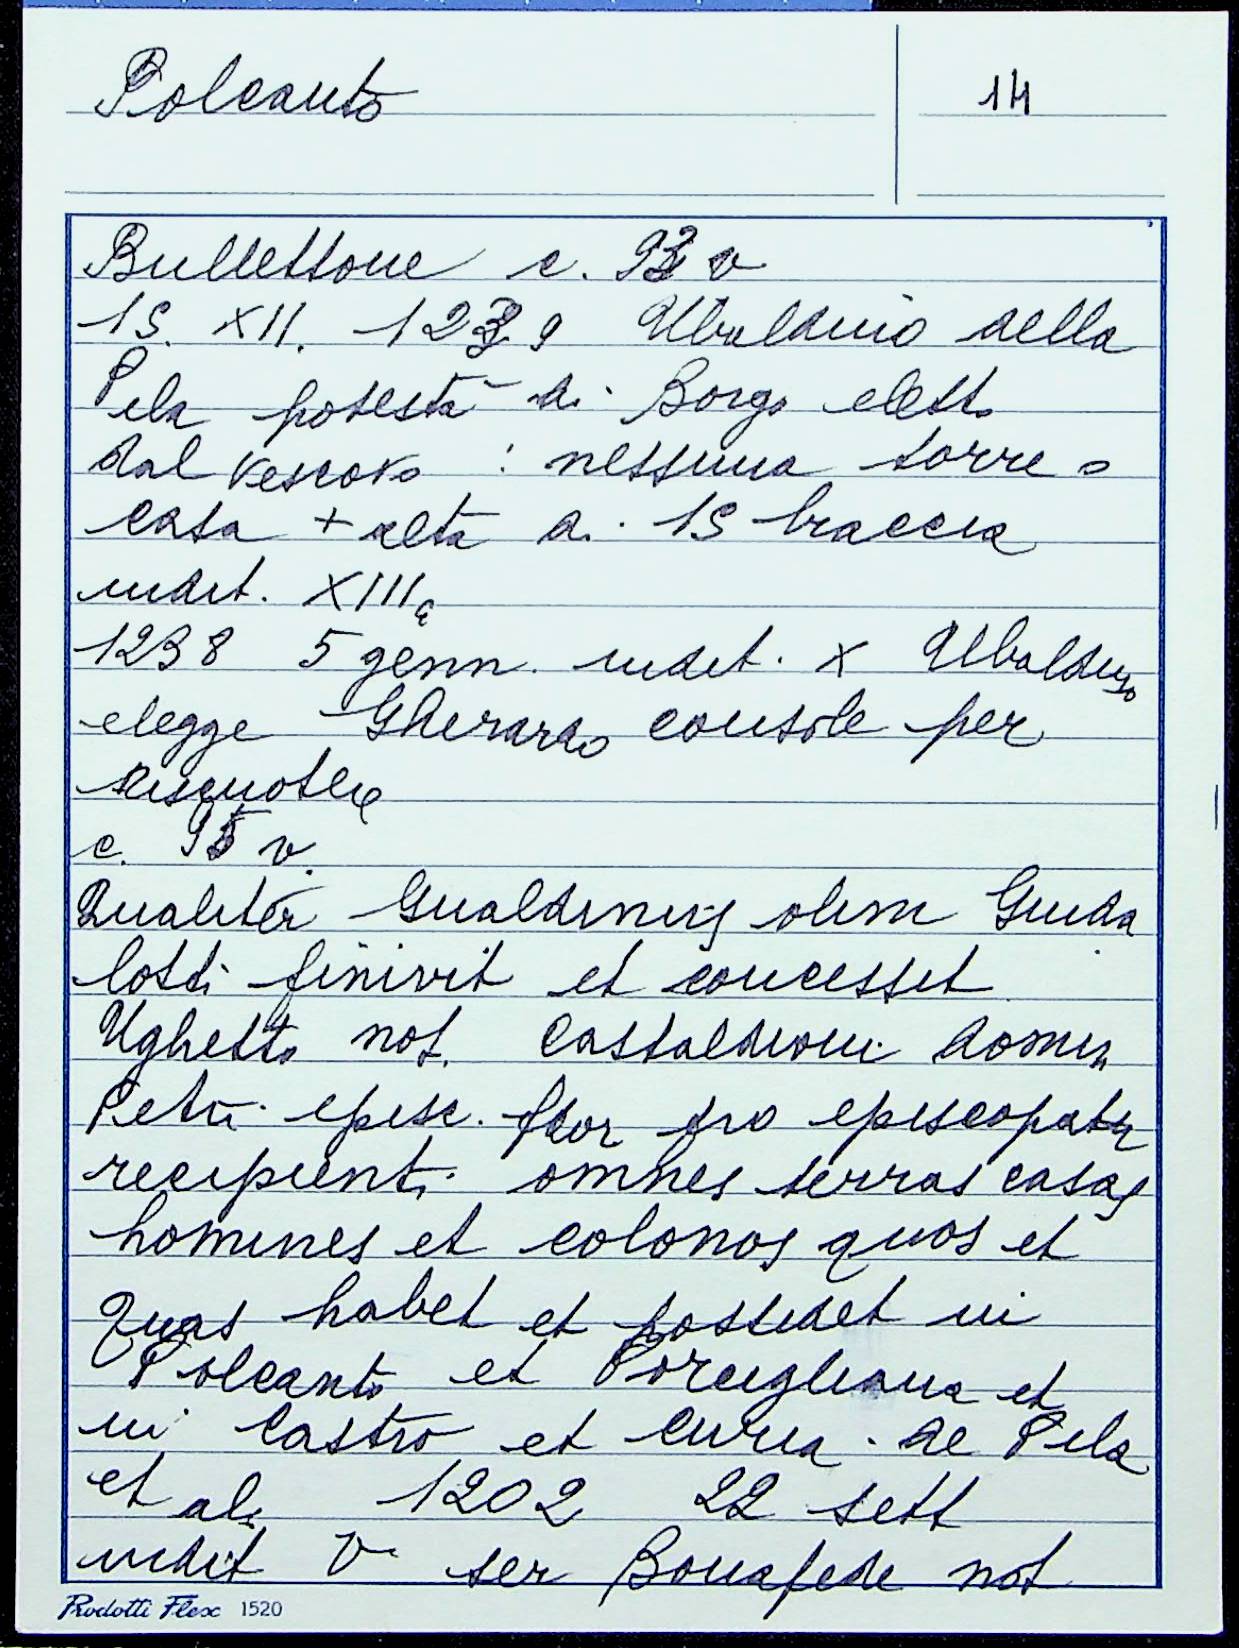 Polcanto
14
Bullettone c. 93 v
15. XII. 1239 Ubaldino della
Pila potestà di Borgo eletto
dal vescovo : nessuna torre o
casa + alta di 15 braccia
indit. XIII a
1238 5 genn. indit. X Ubaldino
elegge Gherardo console per
risquotere
c. 95 v.
Qualiter Gualdinus olim Guida
lotti finivit et concesset
Ughetto not. Castaldioni domini
Petri episc. flor pro episcopatu
recipienti omnes terras casas
homines et colonos quos et
quas habet et possidet in
Polcanto et Porcigliana et
in castro et curia de Pila
et al. 1202 22 sett
indit V ser Bonafede not
Prodotti Flex 1520